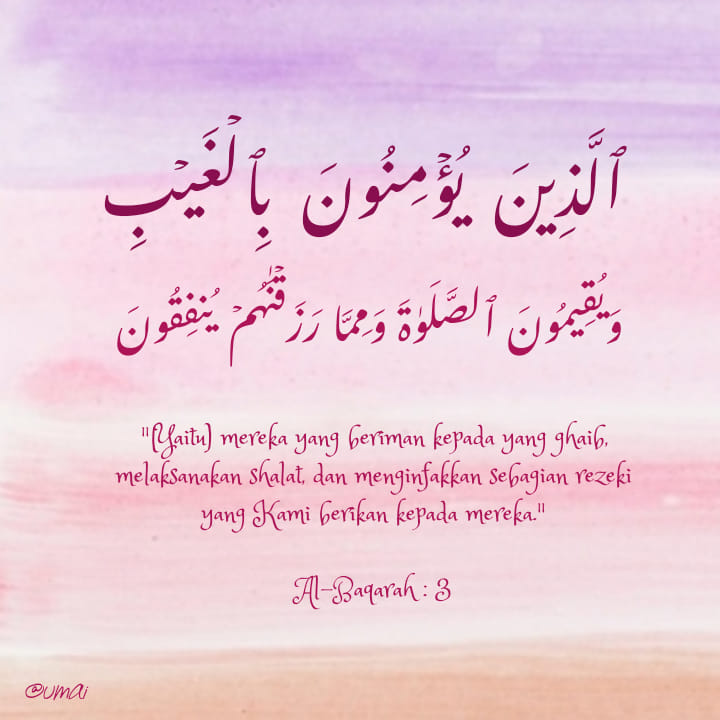 ٱلَّذِينَ يُؤۡمِنُونَ بِٱلۡغَيۡبِ
وَيُقِيمُونَ ٱلصَّلَوٰةَ وَمِمَّا رَزَقۡنَٰهُمۡ يُنفِقُونَ
"(Yaitu) mereka yang beriman kepada yang ghaib,
melaksanakan shalat, dan menginfakkan sebagian rezeki
yang Kami berikan kepada mereka."
Al-Baqarah : 3
@umai